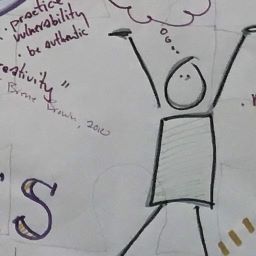 · practice
vulnerability
· be authentic
reativity"
Brene Brown, 2010
's